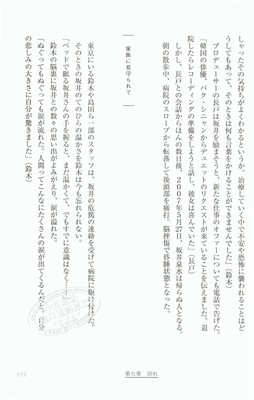 しゃったその気持がよくわかるというか、治療していく中で不安や恐怖に襲われることはど
うしてもあって、そのときは何も言葉をかけることができませんでした」（鈴木）
プロデューサーの長戸は坂井を励まそうと、新たな仕事のオファーについても電話で告げた。
「韓国の俳優、パク・シニャンからデュエットのリクエストが来ていることを伝えました。退
院したらレコーディングの準備をしようと話し、彼女は喜んでいた」（長戸）
しかし、長戸との会話からほんの数日後、2007年5月27日、坂井泉水は帰らぬ人となる。
朝の散歩中、病院のスロープから転落して後頭部を痛打。脳挫傷で昏睡状態となった。
家族に見守られて
東京にいる鈴木や島田ら一部のスタッフは、坂井の危篤の連絡を受けて病院に駆け付けた。
そのときの坂井のてのひらの温かさを鈴木は今も忘れられない。
「ベッドで眠る坂井さんの手を握ると、まだ温かくて、でもすでに意識はなく……」
鈴木の脳裏に坂井との数々の思い出がよみがえり、涙があふれた。
「ぬぐってもぬぐっても涙が流れた。人間ってこんなにたくさん涙が出てくるんだと、自分
の悲しみの大きさに自分が驚きました」（鈴木）
第七章　別れ